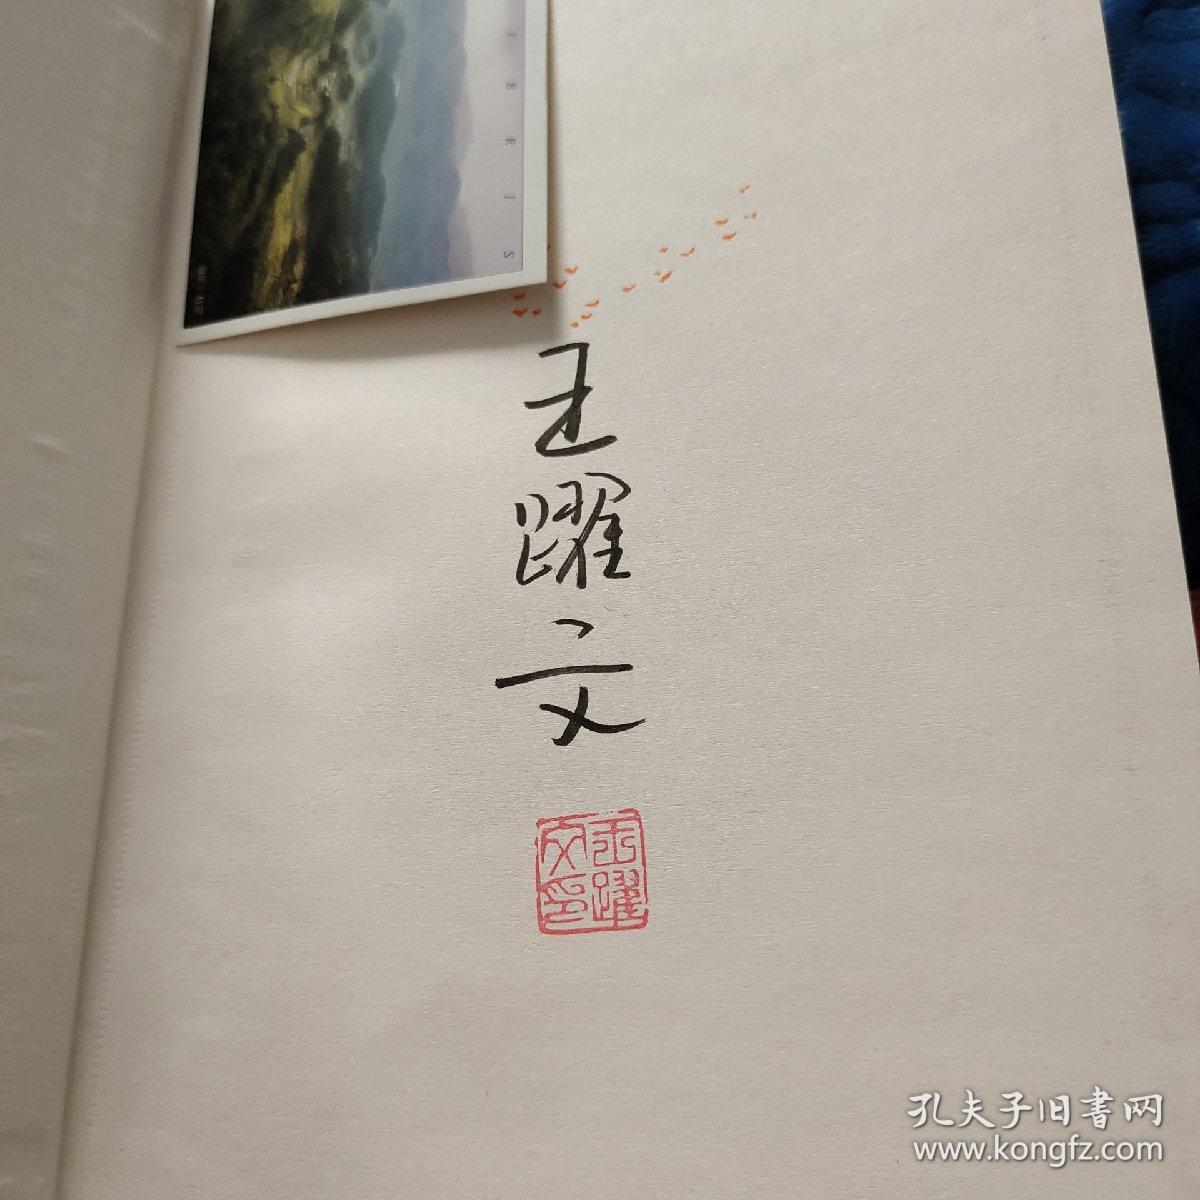 I B R I S
王躍文
王躍文印
孔夫子旧書网
www.kongfz.com